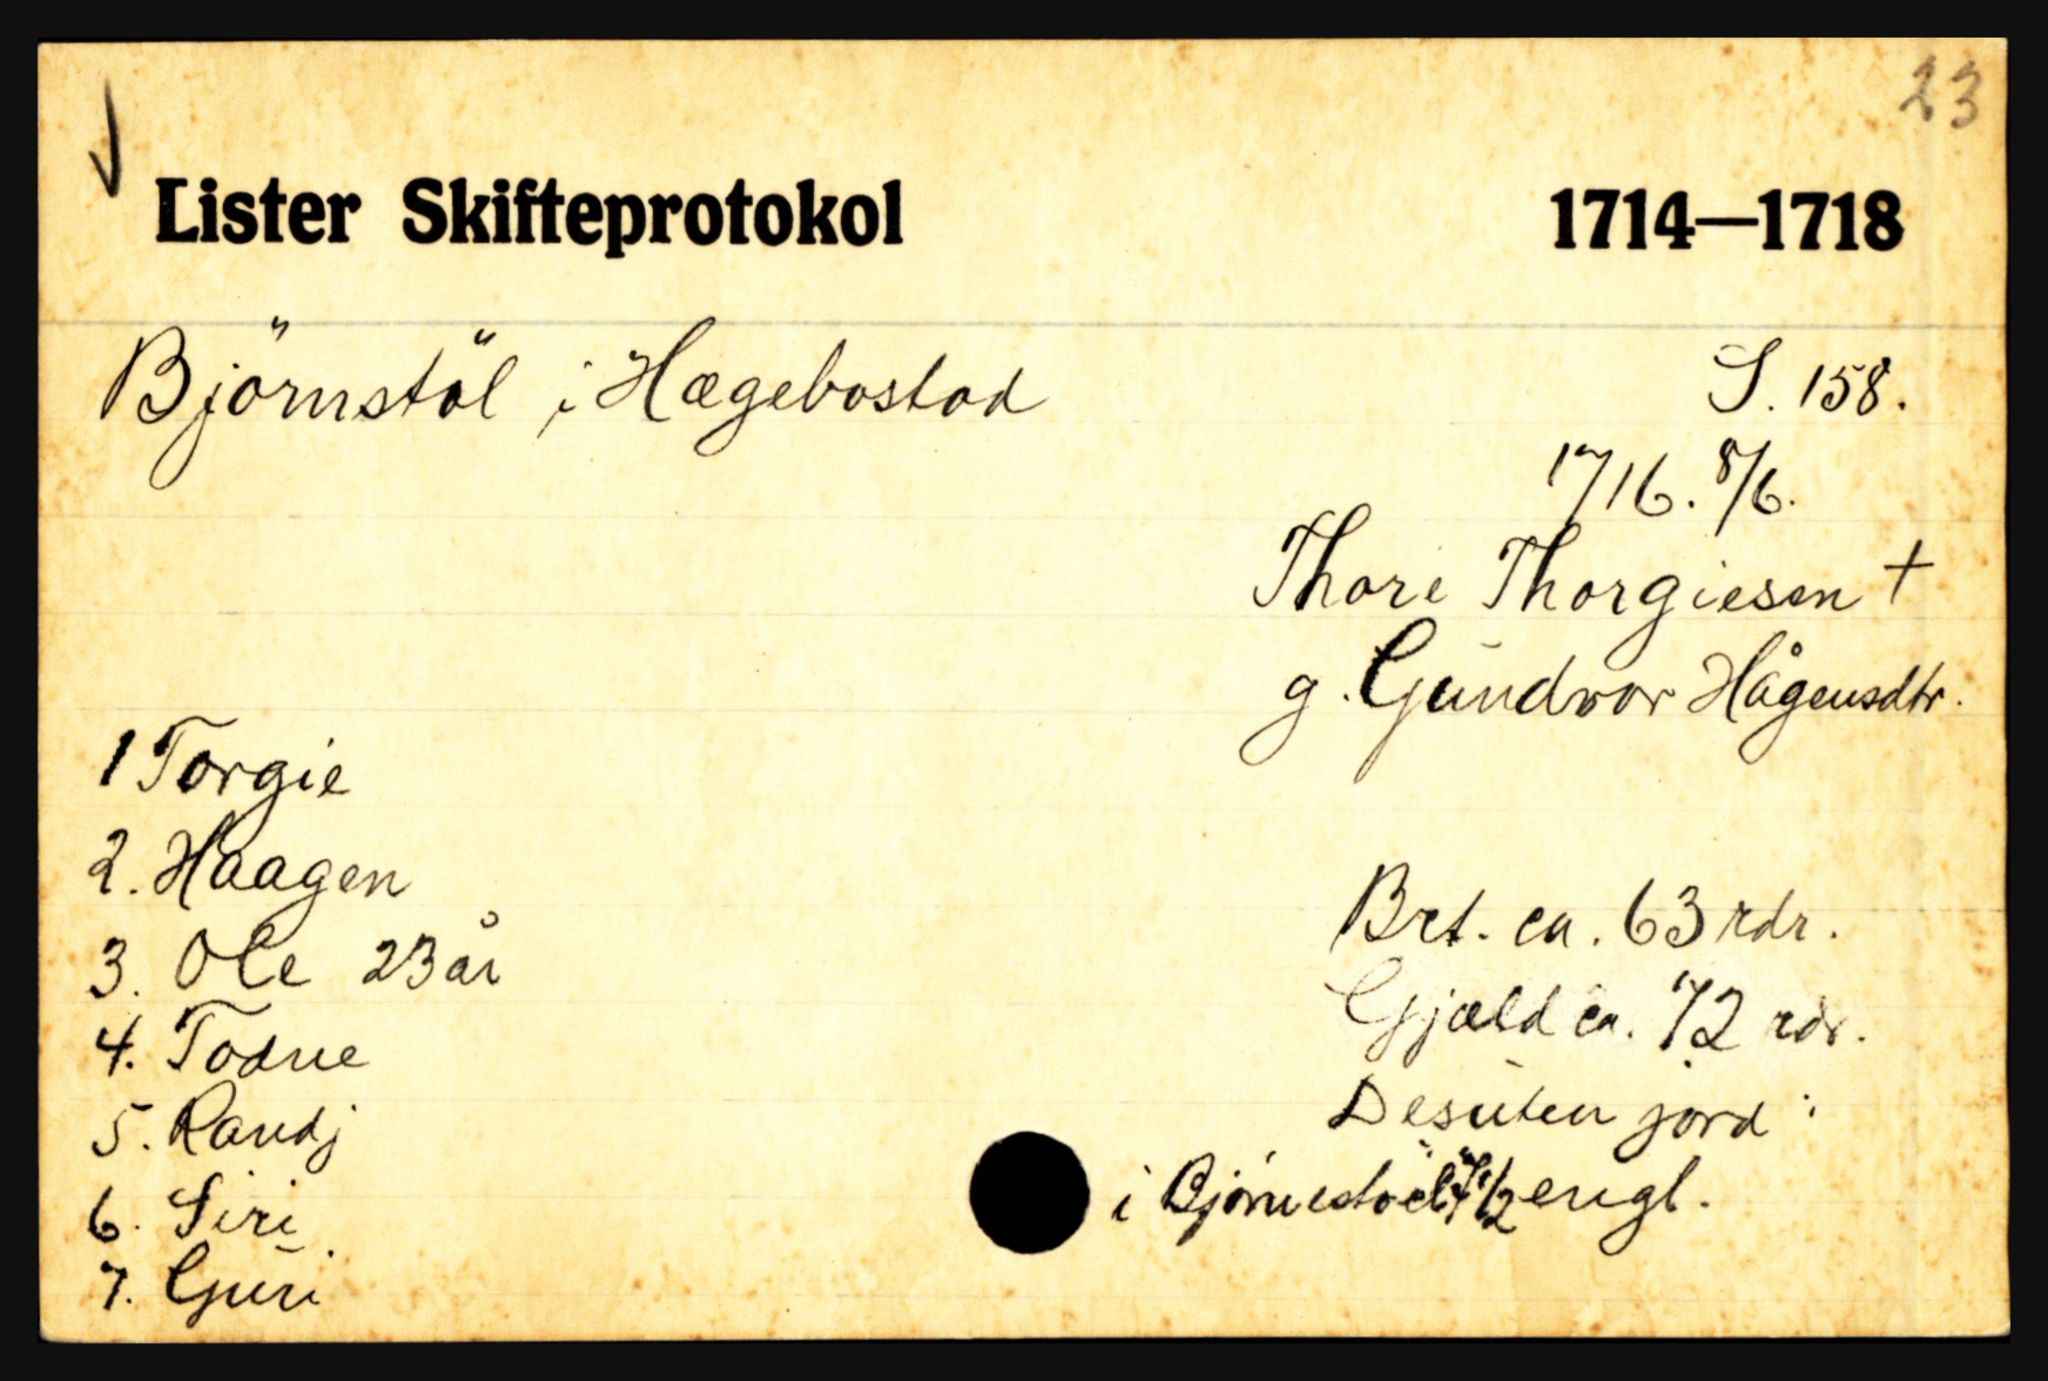 23
Lister Skifteprotokol 1714—1718
Björnstöl i Hægebostad S. 158.
1716. 8/6.
Thore Thorgiesen +
g. Gundvor Hågensdtr.
1 Torgie
2. Haagen
3. Ole 23 år
4. Todne
5. Randj
6. Siri
7. Guri
Brt. ca. 63 rdr.
Gjæld ca. 72 rdr.
Desuten jord:
i 1/2 engl.